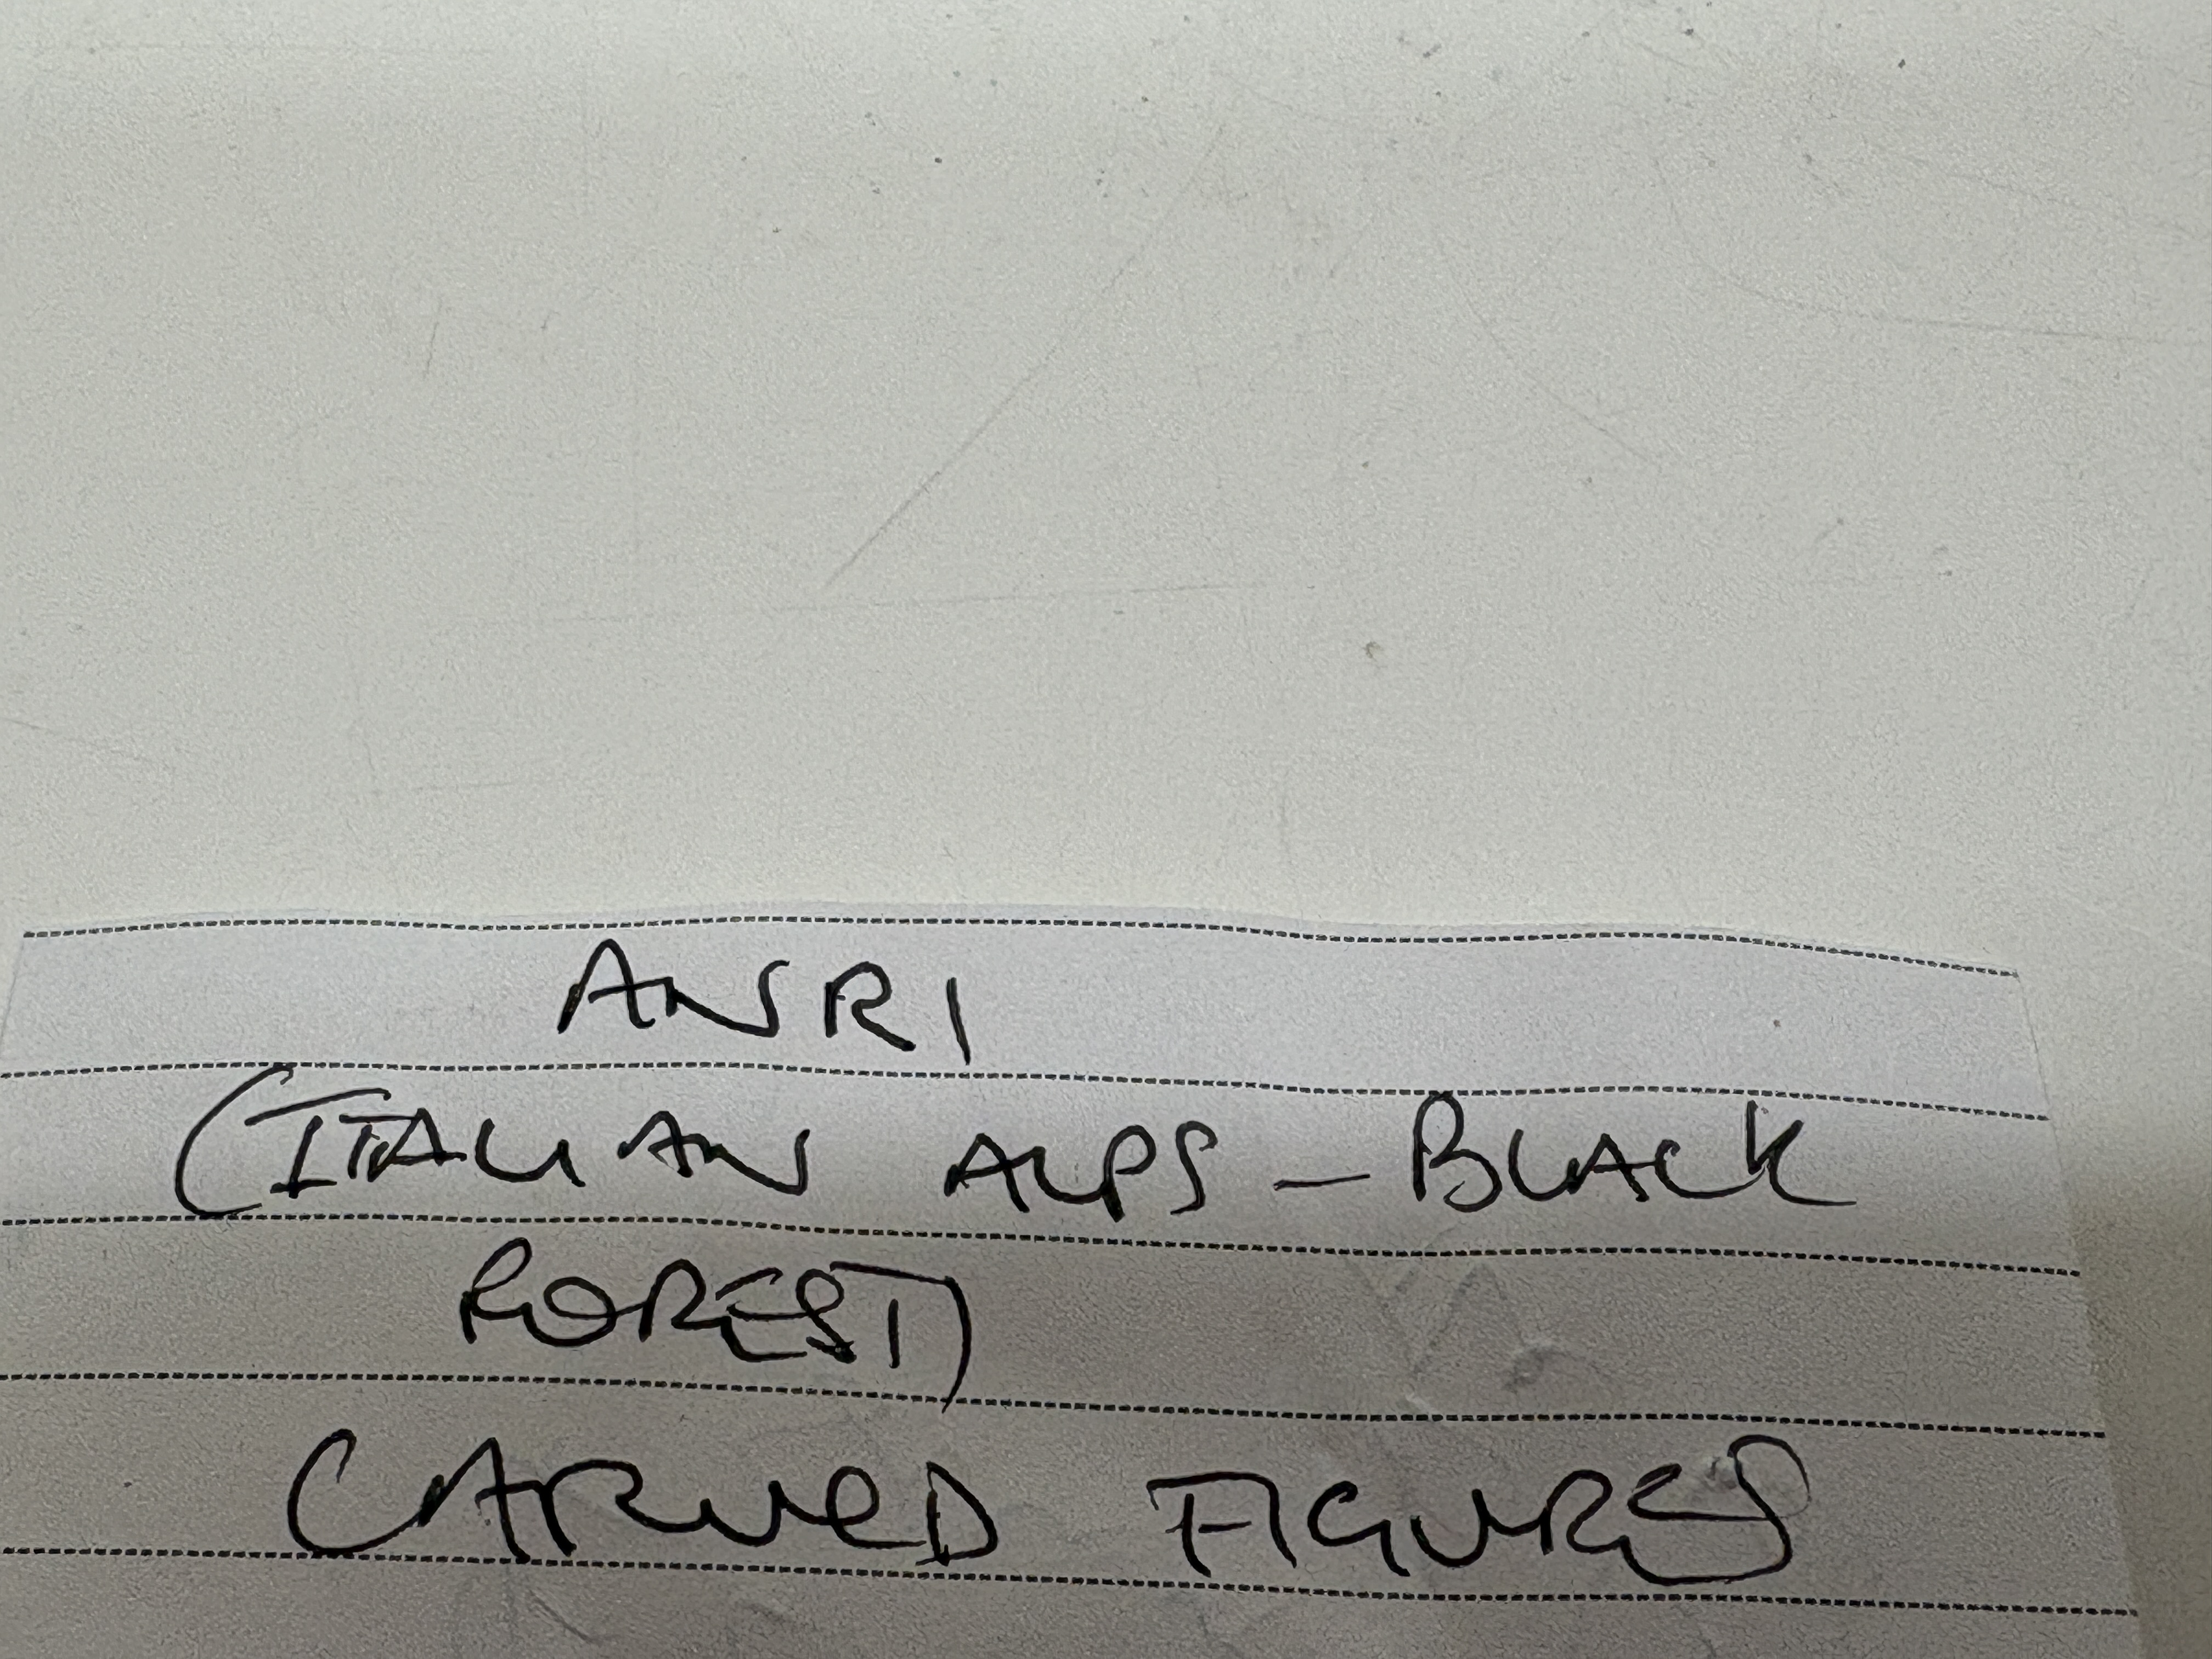 ANRI
(ITALIAN ALPS - BLACK
FOREST)
CARVED FIGURES